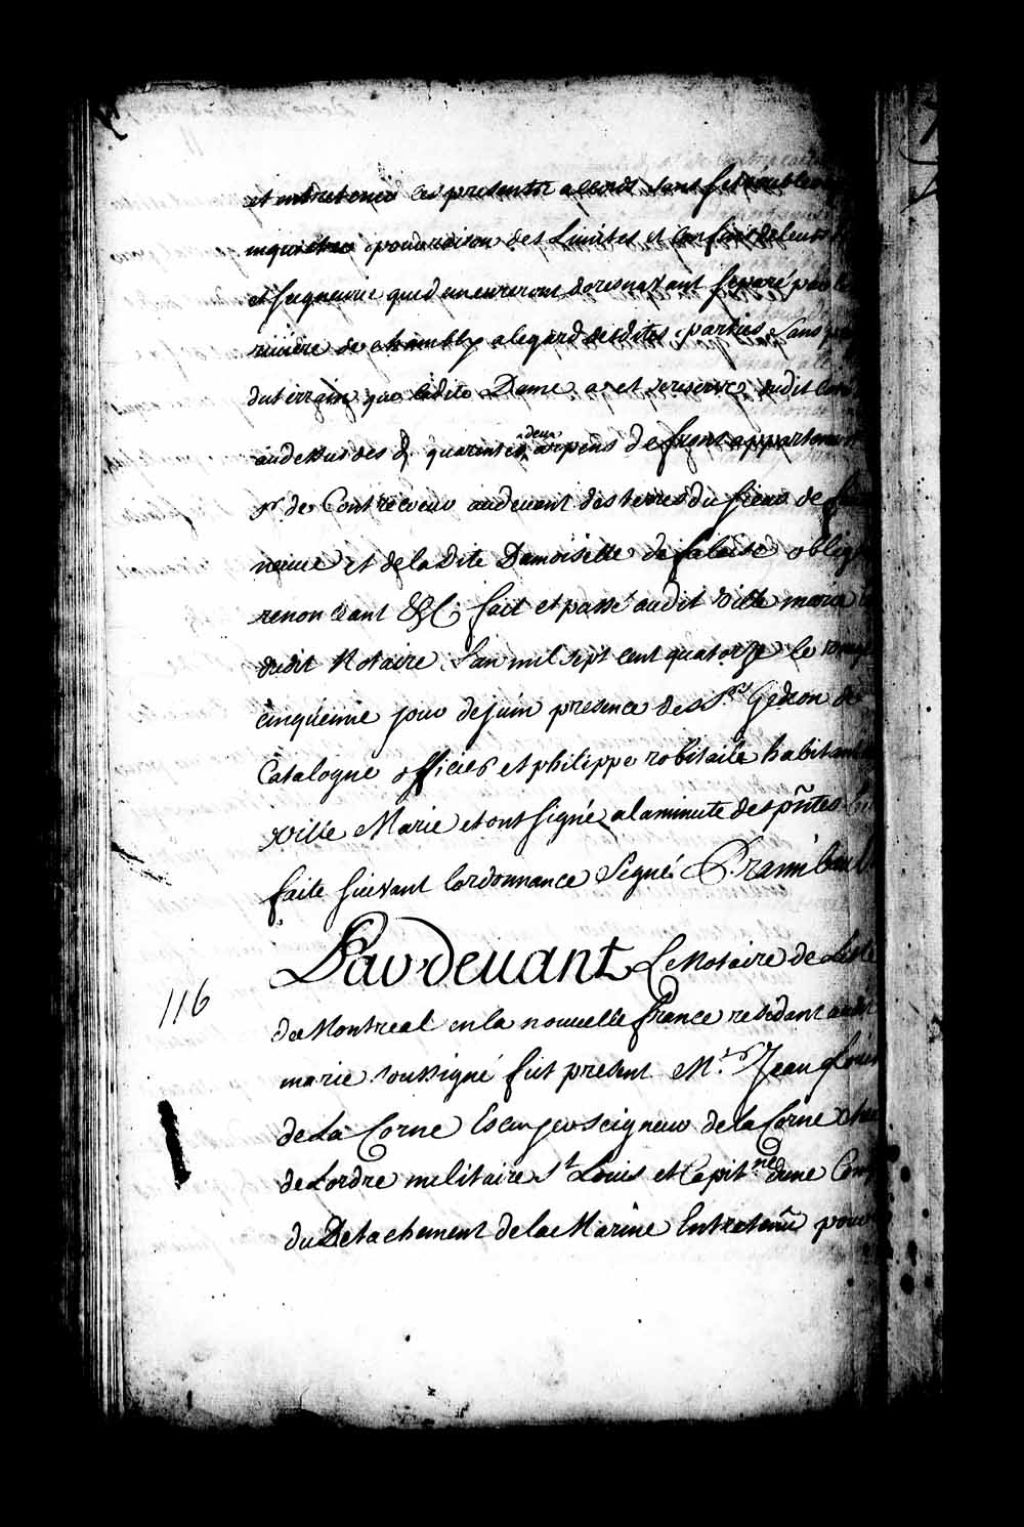 et entretenir ces presentes accords sans se troubler ny
inquieter pour raison des Limites et
et seigneurie qui demeureront doresnavant separé par la
riviere de chambly a legard desdites parties Sans
du terrain que ladite Dame a et reserve audit
audessus des quarente deux arpens de front appartenant
Sr de Contrecoeur audevant des terres du sieur de
neuve et de la Dite Damoiselle de falaise oblige
renonceant &c fait et passé audit ville marie
dudit Notaire Lan mil sept cent quatorze le vingt
cinquieme jour de juin presence des Srs Gedeon de
Catalogne officier et philippe robitaile habitant
ville Marie et ont signé a la minute des pñtes
faite suivant lordonnance Signé
Pardevant Le Notaire de Lisle
de Montreal en la nouvelle france residant audit
116
marie soussigné fut present Mre Jean Louis
de La Corne Escuyer seigneur de la Corne
de Lordre militaire St Louis et Capitne dune Comp
du Detachement de la Marine Entretenue pour